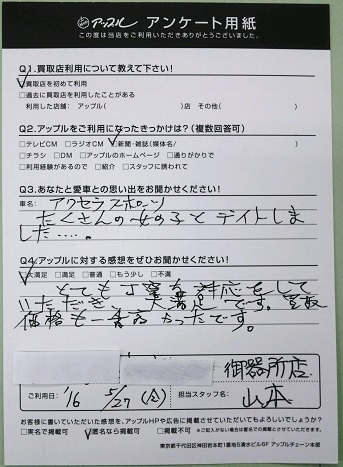 アップル アンケート用紙
この度は当店をご利用いただきありがとうございました。
Q1.買取店利用について教えて下さい!
☑買取店を初めて利用
□過去に買取店を利用したことがある
利用した店舗: アップル( )店 その他( )
Q2.アップルをご利用になったきっかけは?(複数回答可)
□テレビCM □ラジオCM ☑新聞・雑誌(媒体名: )
□チラシ □DM □アップルのホームページ □通りがかりで
□利用経験があるので □紹介 □スタッフに誘われて
Q3.あなたと愛車との思い出をお聞かせください!
車名: アクセラスポーツ
たくさんの女の子とデイトしま
した……。
Q4.アップルに対する感想をぜひお聞かせください!
☑大満足 □満足 □普通 □もう少し □不満
とても丁寧な対応をして
いただき、大満足です。買取
価格も一番高かったです。
御器所店
ご利用日: '16 5/27(金) 担当スタッフ名: 山本
お客様に書いていただいた感想を、アップルHPや広告に掲載させていただいてもよろしいでしょうか?
□実名で掲載可 ☑匿名なら掲載可 □掲載不可 ※ご記入がない場合は匿名での掲載とさせていただきます。
東京都千代田区神田岩本町1番地5清水ビル6F アップルチェーン本部